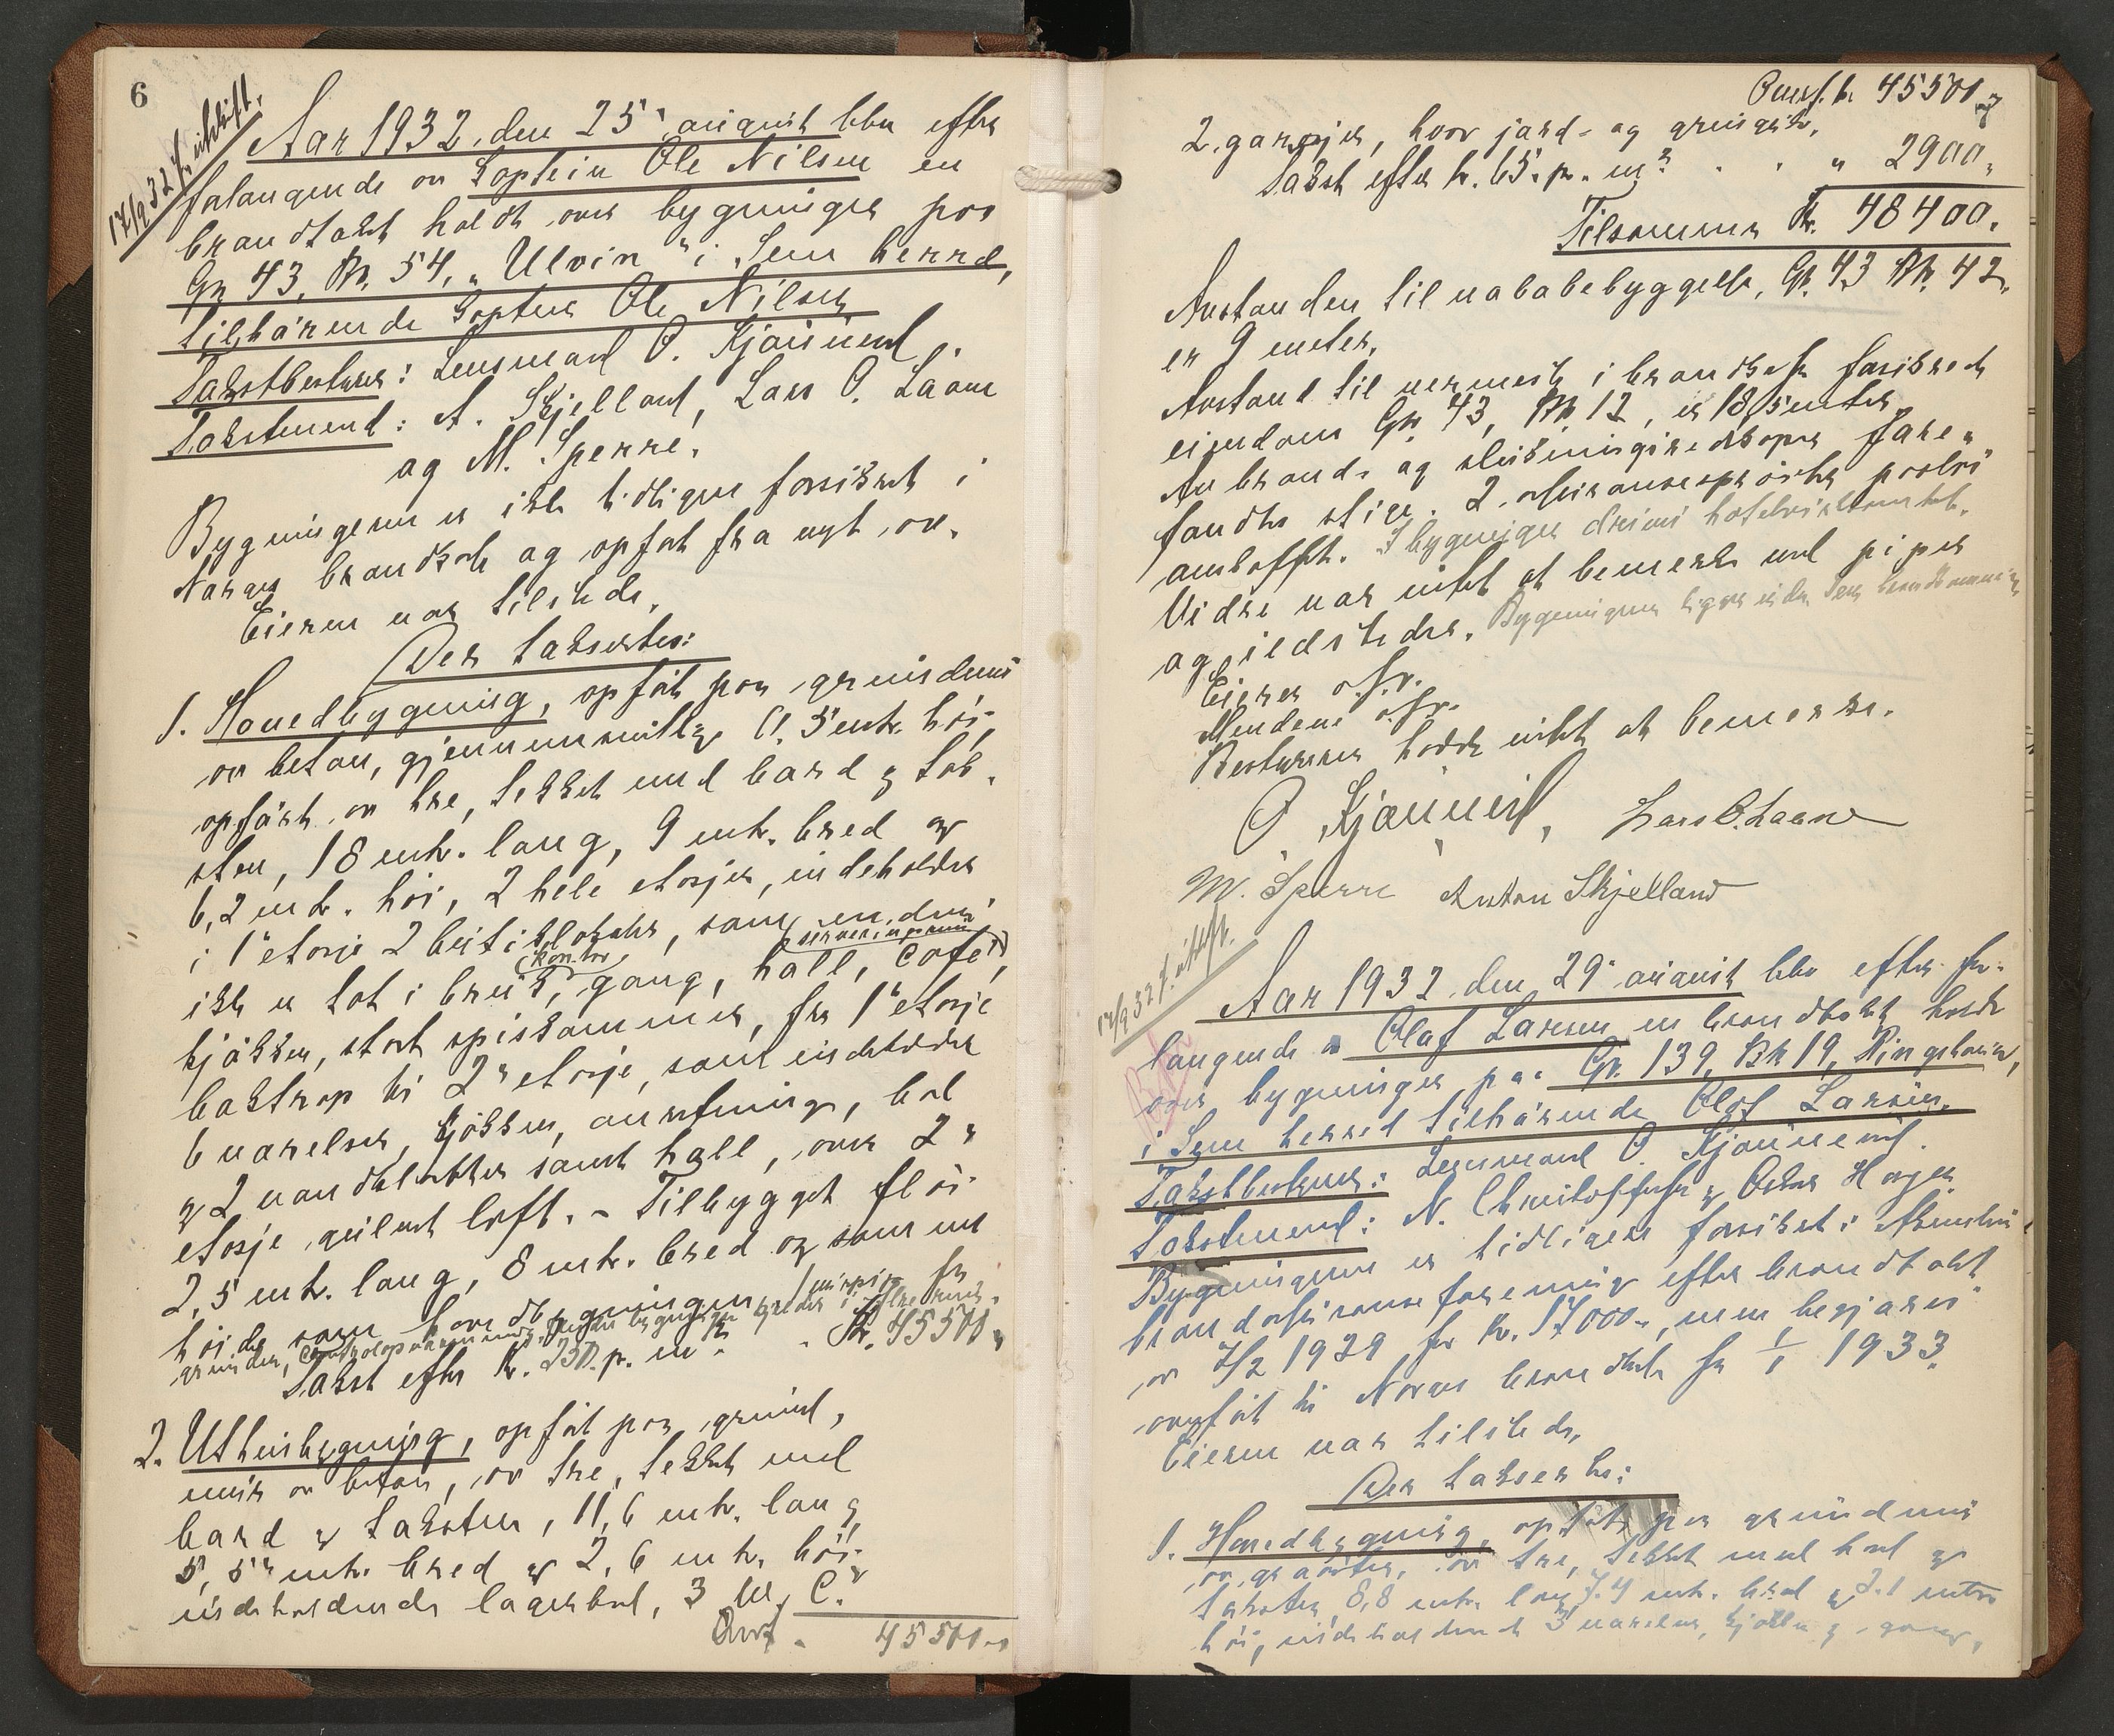 6
17/9 32 f. utskrift.
Aar 1932, den 25' august blev efter
forlangende av Kaptein Ole Nilsen en
brandtakst holdt over bygninger paa
Gn 43, Bn. 54, "Ulvin" i Sem herred,
tilhørende Kaptein Ole Nilsen
Takstbestyrer: Lensmand O. Kjønnerud.
Takstmend: A. Skjelland, Lars O. Laane
og M. Sperre.
Bygningerne er ikke tidligere forsikret i
Norges brandkasse og opført fra nyt av.
Eieren var tilstede.
Der takseertes:
1. Hovedbygning, opført paa grundmur
av beton, gjennemsnitlig 0,5 mtr. høi,
opført av tre, tekket med bord og tak-
sten, 18 mtr. lang, 9 mtr. bred og
6,2 mtr. høi, 2 hele etasjer, indeholder
i 1ste etasje 2 butiklokaler, som endnu
ikke er tat i bruk, (kontor) gang, hall, café (serveringsrum),
kjøkken, stort spiskammer, fra 1ste etasje
baktrap til 2den etasje, som indeholder
6 værelser, kjøkken, anretning, bad
og 2 vandklosetter samt hall, over 2den
etasje gulvet loft. - Tilbygget fløi
2,5 mtr. lang, 8 mtr. bred og samme
høide som hovedbygningen
Takst efter kr. 230. p. m² . Kr. 45500,
2. Uthusbygning, opført paa grund,
mur av beton, av tre, tekket med
bord og taksten, 11,6 mtr. lang,
5,5 mtr. bred og 2,6 mtr. høi
indeholdende lagerbod, 3 W. C.
Overf. 45500.
Overf. kr. 45500,
2 garasjer, hvor jord- og grusgulv.
Takst efter kr. 65. p. m² . . " 2900,
Tilsammen Kr. 48400.
Avstanden til nabobebyggelse, Gn. 43 Bn. 42,
er 9 meter.
Avstand til nermeste i brandkassen forsikrede
eiendom Gn. 43, Bn. 12, er 18,5 meter.
Av brand- og slukningsredskaper fore-
fandtes stige. 2 assuransesprøiter paalovet
anskaffet. I bygningen drives hotelvirksomhet.
Videre var intet at bemerke ved piper
og ildsteder. Bygningene ligger under Sem
Eieren o.s.v.
Mendene o.s.v.
Bestyreren hadde intet at bemerke.
O. Kjønnerud, Lars O. Laane
M. Sperre Anton Skjelland
17/9 32 f. utskr.
Aar 1932, den 29' august blev efter for-
langende av Olaf Larsen en brandtakst holdt
over bygninger paa Gn. 139, Bn 19, Ringshaug,
i Sem herred tilhørende Olaf Larsen.
Takstbestyrer: Lensmand O. Kjønnerud.
Takstmend: N. Christoffersen og Oskar Hagen
Bygningerne er tidligere forsikret i
brandassuranceforening efter brandtakst
av 7/2 1929 for kr. 17000,-, men begjæres
overført til Norges brandkasse fra 1/1 1933.
Eieren var tilstede.
Der takseertes:
1. Hovedbygning, opført paa grundmur
av graasten, av tre, tekket med bord og
taksten, 8,8 mtr. lang 7.4 mtr. bred og 3.1 meter
høi, indeholdende 3 værelser, kjøkken og gang,